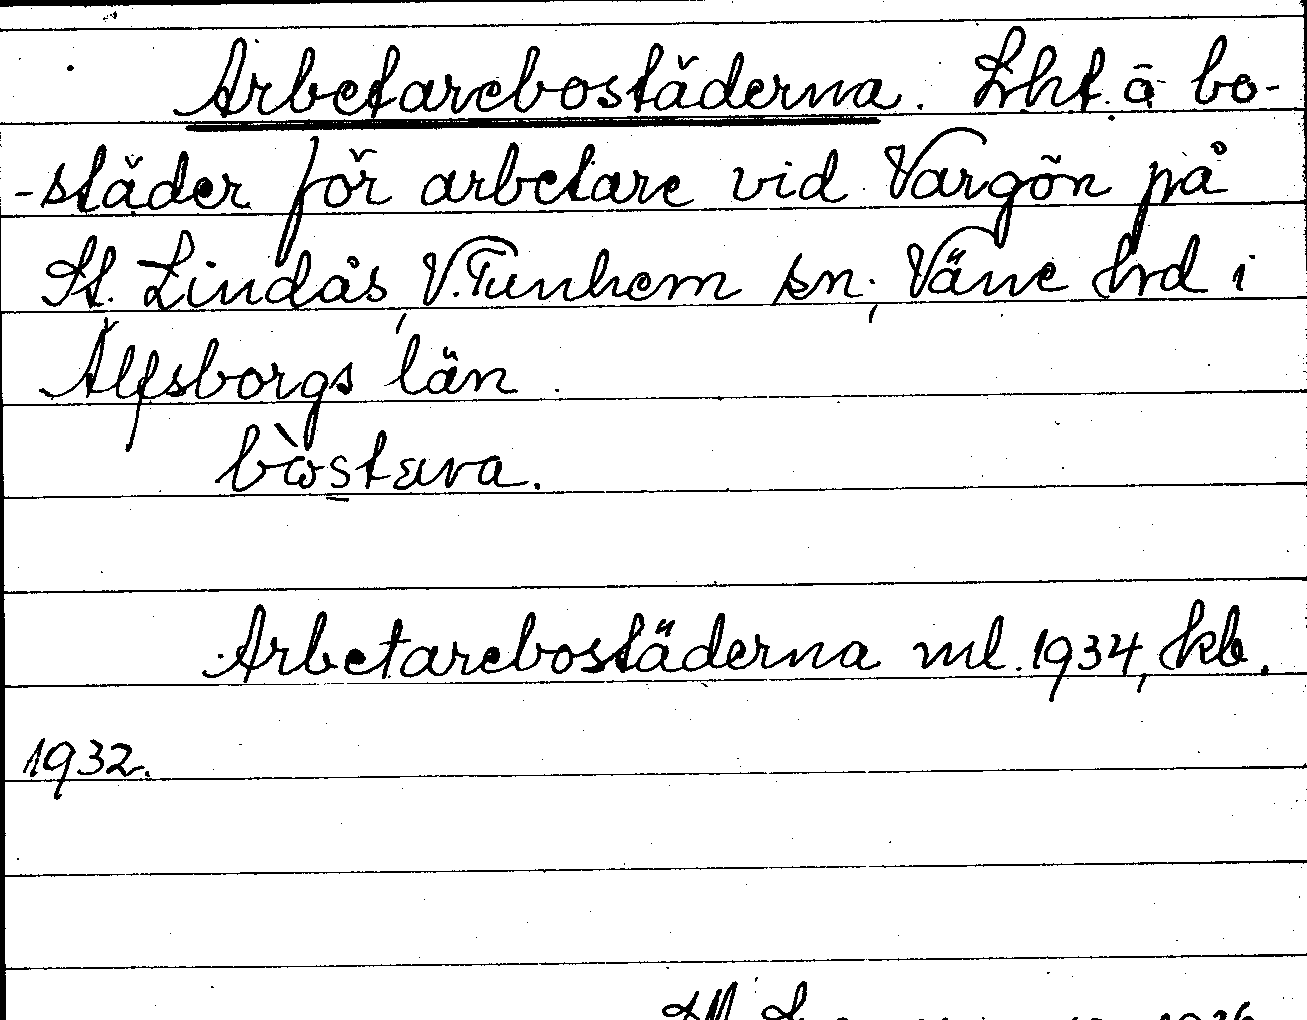 Arbetarebostäderna. Lht. å bo-
-städer för arbetare vid Vargön på
St. Lindås, V. Tunhem sn., Väne hrd i
Älfsborgs län
bòstæra.
Arbetarebostäderna ml. 1934, kb.
1932.